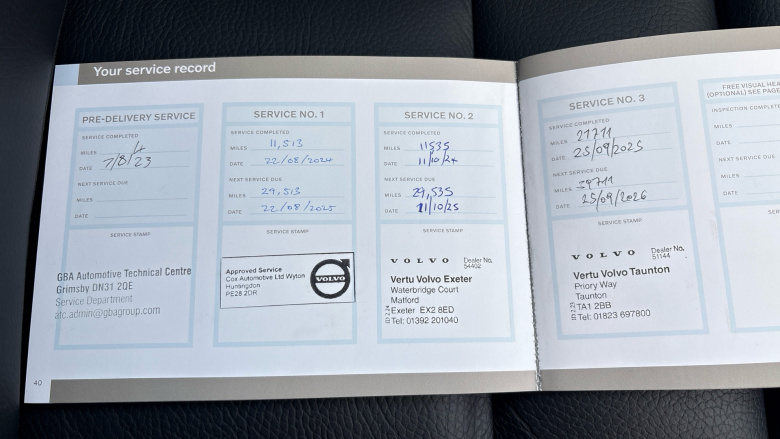 Your service record
PRE-DELIVERY SERVICE
SERVICE COMPLETED
MILES 4
DATE 7/8/23
NEXT SERVICE DUE
MILES
DATE
SERVICE STAMP
GBA Automotive Technical Centre
Grimsby DN31 2QE
Service Department
atc.admin@gbagroup.com
40
SERVICE NO. 1
SERVICE COMPLETED
MILES 11,513
DATE 22/08/2024
NEXT SERVICE DUE
MILES 29,513
DATE 22/08/2025
SERVICE STAMP
Approved Service
Cox Automotive Ltd Wyton
Huntingdon
PE28 2DR
VOLVO
SERVICE NO. 2
SERVICE COMPLETED
MILES 11535
DATE 11/10/24
NEXT SERVICE DUE
MILES 29,535
DATE 11/10/25
SERVICE STAMP
VOLVO Dealer No.
54402
Vertu Volvo Exeter
Waterbridge Court
Matford
Exeter EX2 8ED
Tel: 01392 201040
SERVICE NO. 3
SERVICE COMPLETED
MILES 21711
DATE 25/09/2025
NEXT SERVICE DUE
MILES 39711
DATE 25/09/2026
SERVICE STAMP
VOLVO Dealer No.
51144
Vertu Volvo Taunton
Priory Way
Taunton
TA1 2BB
Tel: 01823 697800
FREE VISUAL HEA
(OPTIONAL) SEE PAGE
INSPECTION COMPLETE
MILES
DATE
NEXT SERVICE DUE
MILES
DATE
SER